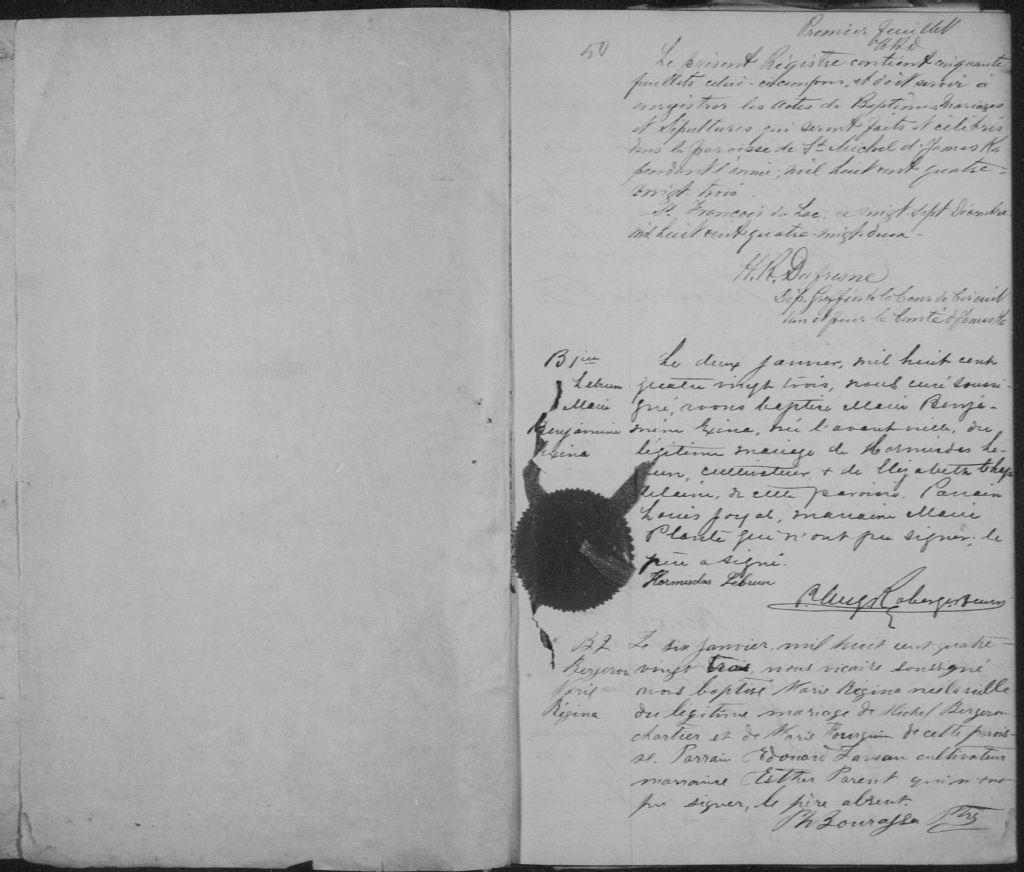 Premier feuillet
H.R.D
50
Le présent Régistre contient cinquante
feuillets celui-ci compris, et doit servir à
enregistrer les Actes de Baptêmes, Mariages
et Sépultures qui seront faits et célébrés
dans la paroisse de St. Michel d'Yamaska
pendant l'année, mil huit cent quatre-
vingt trois
St. François du Lac, ce vingt sept Décembre
mil huit cent quatre-vingt-deux -
H.R. Dufresne
Dép. Greffier de la Cour de Circuit
dans et pour le Comté d'Yamaska
B 1ier
Lebrun
Marie
Benjamine
Exina
Le deux janvier, mil huit cent
quatre vingt trois, nous curé soussi-
gné, avons baptisé Marie Benja-
mine Exina, née l'avant veille, du
légitime mariage de Hormisdas Le-
brun, cultivateur & de Elizabeth Chap
delaine, de cette paroisse. Parrain
Louis Joyal, marraine Marie
Plante qui n'ont pu signer; le
père a signé.
Hormisdas Lebrun
B 2
Bergeron
Marie
Régina
Le six janvier, mil huit cent quatre-
vingt trois, nous vicaire soussigné
avons baptisé Marie Régina née la veille
du légitime mariage de Michel Bergeron
chartier et de Marie de cette parois-
se. Parrain Edouard cultivateur
marraine Esther Parent qui n'ont
pu signer, le père absent.
Ph Bourassa Ptre